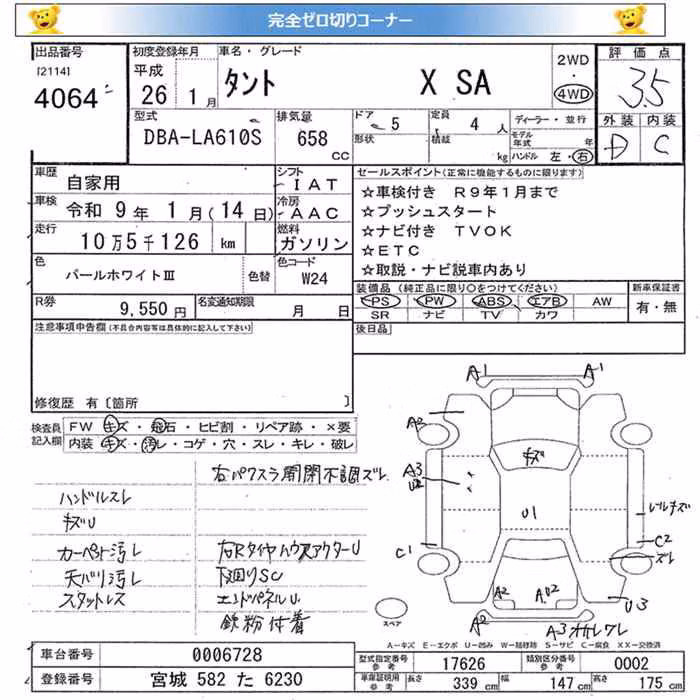 完全ゼロ切りコーナー
出品番号 初度登録年月 車名・グレード 2WD ・ 4WD 評価点
[2114] 平成 タント X SA 3.5
4064 26 1月
型式 排気量 ドア 5 定員 4人 ディーラー・並行 外装 内装
DBA-LA610S 658 CC 形状 積載 kg モデル年式 年 D C
ハンドル 左・右
車歴 自家用 シフト IAT セールスポイント(正常に機能するものに限ります)
車検 令和 9年 1月(14日) 冷房 AAC ☆車検付き R9年1月まで
☆プッシュスタート
走行 10万5千126 km 燃料 ガソリン ☆ナビ付き TVOK
☆ETC
色 パールホワイトⅢ 色替 色コード W24 ☆取説・ナビ説車内あり
装備品(純正品に限り○をつけてください) 新車保証書
PS PW ABS エアB AW 有・無
R券 9,550円 名変通知期限 月 日 SR ナビ TV カワ
注意事項申告欄(不具合内容等は具体的に記入して下さい) 後日品
修復歴 有〔箇所 〕
検査員記入欄 FW キズ・飛石・ヒビ割・リペア跡・×要
内装 キズ・汚レ・コゲ・穴・スレ・キレ・破レ
右パワスラ開閉不調ズレ
ハンドルスレ
キズU
カーペット汚レ 右RタイヤハウスアウターU
天バリ汚レ 下回りSC
スタットレス エンドパネルU
鉄粉付着
A1 A1
A3
キズ
A3
U2
U1
レールキズ
C1 C2
ズレ
A2 A2 U2
U3
A2 A3オカレワレ
スペア
A-キズ E-エクボ U-凹み W-補修跡 S-サビ C-腐食 XX-交換済
車台番号 0006728 型式指定番号 参考 17626 類別区分番号 参考 0002
登録番号 宮城 582 た 6230 車庫証明用 参考 長さ 339 cm 幅 147 cm 高さ 175 cm